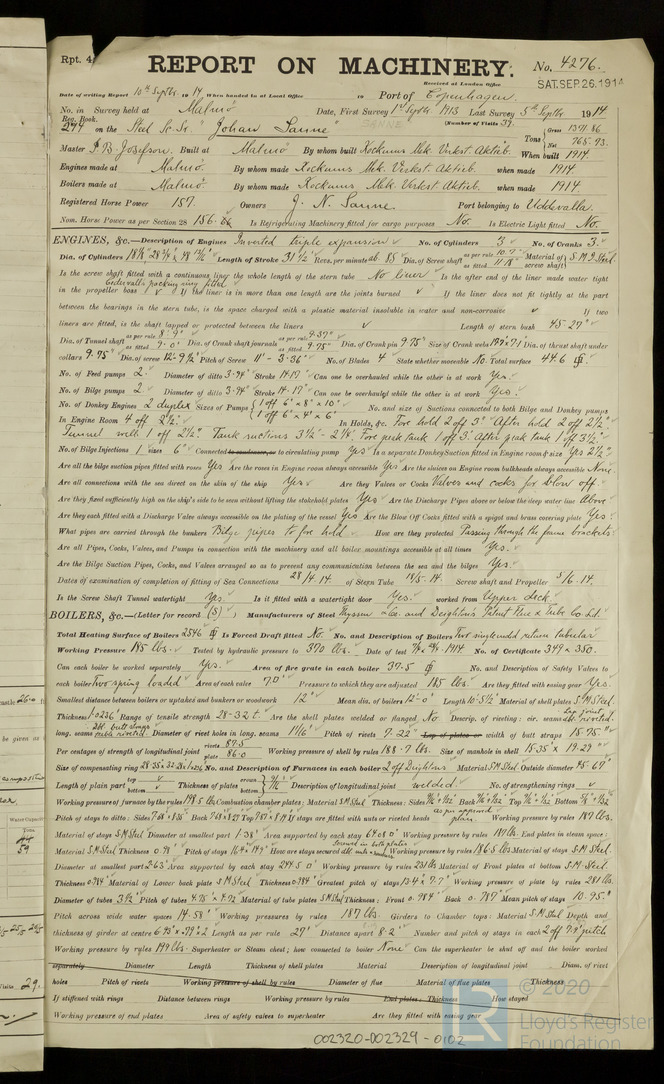 Rpt. 4
REPORT ON MACHINERY.
No. 4276.
Received at London Office
SAT. SEP. 26. 1914
Date of writing Report 10th Septbr. 1914 When handed in at Local Office Port of Copenhagen.
No. in Survey held at Malmö Date, First Survey 1st Septbr. 1913 Last Survey 5th Septbr 1914
Reg. Book.
(Number of Visits 39)
274 on the Steel Sc. Sr. Johan Sanne
Tons Gross 1371.86
Net 768.93
Master P. B. Josefson Built at Malmö By whom built Kockums Mek. Verkst. Aktieb. When built 1914
Engines made at Malmö By whom made Kockums Mek. Verkst. Aktieb. when made 1914.
Boilers made at Malmö By whom made Kockums Mek. Verkst. Aktieb. when made 1914
Registered Horse Power 157. Owners J. N. Sanne. Port belonging to Uddevalla.
Nom. Horse Power as per Section 28 156.66 Is Refrigerating Machinery fitted for cargo purposes No. Is Electric Light fitted No.
ENGINES, &c.—Description of Engines Inverted triple expansion No. of Cylinders 3 No. of Cranks 3.
Dia. of Cylinders Length of Stroke 31 1/2" Revs. per minute 85 Dia. of Screw shaft as per rule as fitted Material of screw shaft S.M. Steel
Is the screw shaft fitted with a continuous liner the whole length of the stern tube No liner Is the after end of the liner made water tight
in the propeller boss If the liner is in more than one length are the joints burned If the liner does not fit tightly at the part
between the bearings in the stern tube, is the space charged with a plastic material insoluble in water and non-corrosive If two
liners are fitted, is the shaft lapped or protected between the liners Length of stern bush 45.27"
Dia. of Tunnel shaft as per rule as fitted 9.0" Dia. of Crank shaft journals as per rule 9.37" as fitted 9.75" Dia. of Crank pin 9.75" Size of Crank webs Dia. of thrust shaft under
collars 9.75" Dia. of screw 12'-9 1/2" Pitch of Screw 11'-3.36" No. of Blades 4 State whether moveable No Total surface 44.6
No. of Feed pumps 2. Diameter of ditto 3.74" Stroke 14.17" Can one be overhauled while the other is at work Yes.
No. of Bilge pumps 2. Diameter of ditto 3.74" Stroke 14.17" Can one be overhauled while the other is at work Yes.
No. of Donkey Engines 2 duplex Sizes of Pumps 1 off 6" x 8" x 10" 1 off 6" x 4" x 6" No. and size of Suctions connected to both Bilge and Donkey pumps
In Engine Room 4 off 2 1/2" In Holds, &c. Fore hold 2 off 3" After hold 2 off 2 1/2"
Tunnel well 1 off 2 1/2". Tank suctions 3 1/2" - 2 1/2" Fore peak tank 1 off 3" After peak tank 1 off 3 1/2"
No. of Bilge Injections 1 sizes 6" Connected to condenser, or to circulating pump Yes Is a separate Donkey Suction fitted in Engine room & size Yes 2 1/2"
Are all the bilge suction pipes fitted with roses Yes Are the roses in Engine room always accessible Yes Are the sluices on Engine room bulkheads always accessible None
Are all connections with the sea direct on the skin of the ship Yes Are they Valves or Cocks Valves and cocks for blow off.
Are they fixed sufficiently high on the ship's side to be seen without lifting the stokehold plates Yes Are the Discharge Pipes above or below the deep water line Above
Are they each fitted with a Discharge Valve always accessible on the plating of the vessel Yes Are the Blow Off Cocks fitted with a spigot and brass covering plate Yes
What pipes are carried through the bunkers Bilge pipes to fore hold How are they protected Passing through the frame brackets.
Are all Pipes, Cocks, Valves, and Pumps in connection with the machinery and all boiler mountings accessible at all times Yes.
Are the Bilge Suction Pipes, Cocks, and Valves arranged so as to prevent any communication between the sea and the bilges Yes.
Dates of examination of completion of fitting of Sea Connections 28/4.14. of Stern Tube 14/5.14. Screw shaft and Propeller 5/6.14.
Is the Screw Shaft Tunnel watertight Yes. Is it fitted with a watertight door Yes. worked from Upper deck.
BOILERS, &c.—(Letter for record (S)) Manufacturers of Steel Thyssen & Co. and Deighton's Patent Flue & Tube Co. Ld.
Total Heating Surface of Boilers 2546 Is Forced Draft fitted No. No. and Description of Boilers Two single ended return tubular
Working Pressure 185 lbs. Tested by hydraulic pressure to 370 lbs. Date of test 1914 No. of Certificate 349 & 350.
Can each boiler be worked separately Yes. Area of fire grate in each boiler 37.5 No. and Description of Safety Valves to
each boiler Two spring loaded Area of each valve 7.0" Pressure to which they are adjusted 185 lbs. Are they fitted with easing gear Yes.
Smallest distance between boilers or uptakes and bunkers or woodwork 12" Mean dia. of boilers 12'-0" Length 10'-5 1/2" Material of shell plates S.M. Steel
Thickness 1.0236" Range of tensile strength 28-32 t. Are the shell plates welded or flanged No Descrip. of riveting: cir. seams lap joint dbl. riveted.
long. seams dbl. butt straps treble riveted. Diameter of rivet holes in long. seams 1 1/16" Pitch of rivets 7.22" Lap of plates or width of butt straps 15.75"
Per centages of strength of longitudinal joint rivets 87.5 plate 86.0 Working pressure of shell by rules 188.7 lbs. Size of manhole in shell 15.35" x 19.29"
Size of compensating ring No. and Description of Furnaces in each boiler 2 off Deightons Material S.M. Steel Outside diameter 45.67"
Length of plain part top bottom Thickness of plates crown bottom 9/16" Description of longitudinal joint welded. No. of strengthening rings
Working pressure of furnace by the rules 198.5 lbs Combustion chamber plates: Material S.M. Steel Thickness: Sides Back Top Bottom
Pitch of stays to ditto: Sides Back Top If stays are fitted with nuts or riveted heads as per approved plan Working pressure by rules 187 lbs.
Material of stays S.M. Steel Diameter at smallest part 1.38" Area supported by each stay Working pressure by rules End plates in steam space:
Material S.M. Steel Thickness 0.98" Pitch of stays How are stays secured Working pressure by rules 186.5 lbs. Material of stays S.M. Steel.
Diameter at smallest part 2.63" Area supported by each stay 244.5 Working pressure by rules 231 lbs Material of Front plates at bottom S.M. Steel.
Thickness 0.984" Material of Lower back plate S.M. Steel Thickness 0.984" Greatest pitch of stays 13.4" x 7.7" Working pressure of plate by rules 281 lbs.
Diameter of tubes 3 1/2" Pitch of tubes 4.75" x 4.72 Material of tube plates S.M. Steel Thickness: Front 0.984" Back 0.787" Mean pitch of stays 10.75"
Pitch across wide water spaces 14.58" Working pressures by rules 187 lbs. Girders to Chamber tops: Material S.M. Steel Depth and
thickness of girder at centre Length as per rule 27" Distance apart 8.2" Number and pitch of stays in each 2 off 7.9" pitch
Working pressure by rules 199 lbs. Superheater or Steam chest; how connected to boiler None Can the superheater be shut off and the boiler worked
separately Diameter Length Thickness of shell plates Material Description of longitudinal joint Diam. of rivet
holes Pitch of rivets Working pressure of shell by rules Diameter of flue Material of flue plates Thickness
If stiffened with rings Distance between rings Working pressure by rules End plates: Thickness How stayed
Working pressure of end plates Area of safety valves to superheater Are they fitted with easing gear
002320-002329-0102
© 2020
LR
Lloyd's Register
Foundation